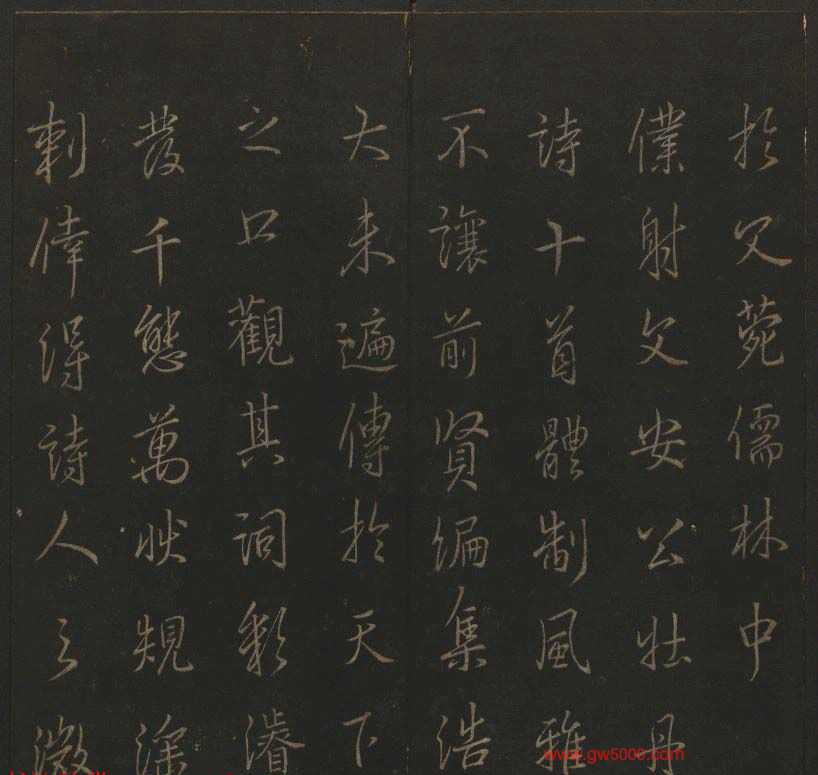 於文菀儒林中
僕射文安公牡丹
詩十首體制風雅
不讓前賢編集浩
大未遍傳於天下
之口觀其詞彩濬
發千態萬狀規深
刺偉得詩人之微
www.gw5000.com